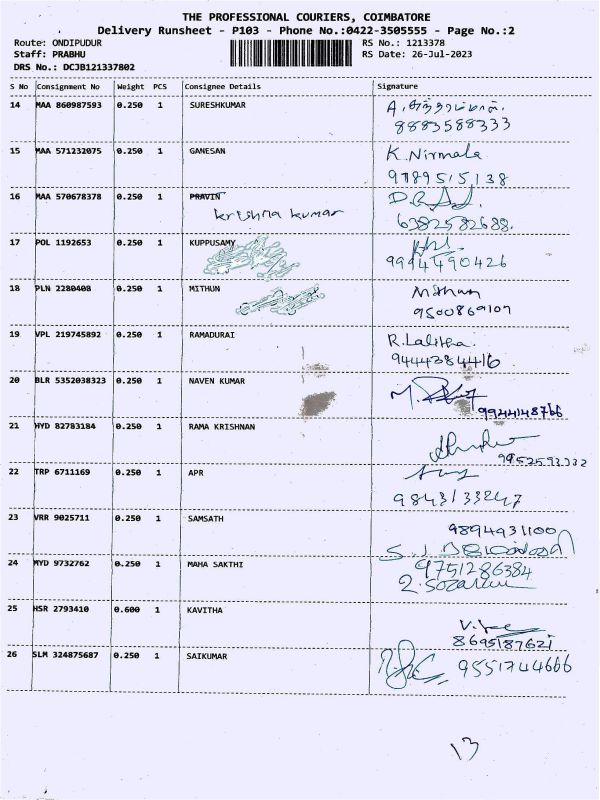 THE PROFESSIONAL COURIERS, COIMBATORE
Delivery Runsheet - P103 - Phone No.:0422-3505555 - Page No.:2
Route: ONDIPUDUR RS No.: 1213378
Staff: PRABHU RS Date: 26-Jul-2023
DRS No.: DCJB121337802
S No Consignment No Weight PCS Consignee Details Signature
14 MAA 860987593 0.250 1 SURESHKUMAR
8883588333
15 MAA 571232075 0.250 1 GANESAN K. Nirmala
9789515138
16 MAA 570678378 0.250 1 PRAVIN
krishna kumar 6382582688.
17 POL 1192653 0.250 1 KUPPUSAMY
9994490426
18 PLN 2280408 0.250 1 MITHUN Mithun
9500869107
19 VPL 219745892 0.250 1 RAMADURAI R. Lalitha.
9444384416
20 BLR 5352038323 0.250 1 NAVEN KUMAR
9944148766
21 HYD 82783184 0.250 1 RAMA KRISHNAN
9952593332
22 TRP 6711169 0.250 1 APR
9843133247
23 VRR 9025711 0.250 1 SAMSATH 9894931100
24 MYD 9732762 0.250 1 MAHA SAKTHI 9751286384
25 HSR 2793410 0.600 1 KAVITHA
8695187621
26 SLM 324875687 0.250 1 SAIKUMAR 9551744666
13